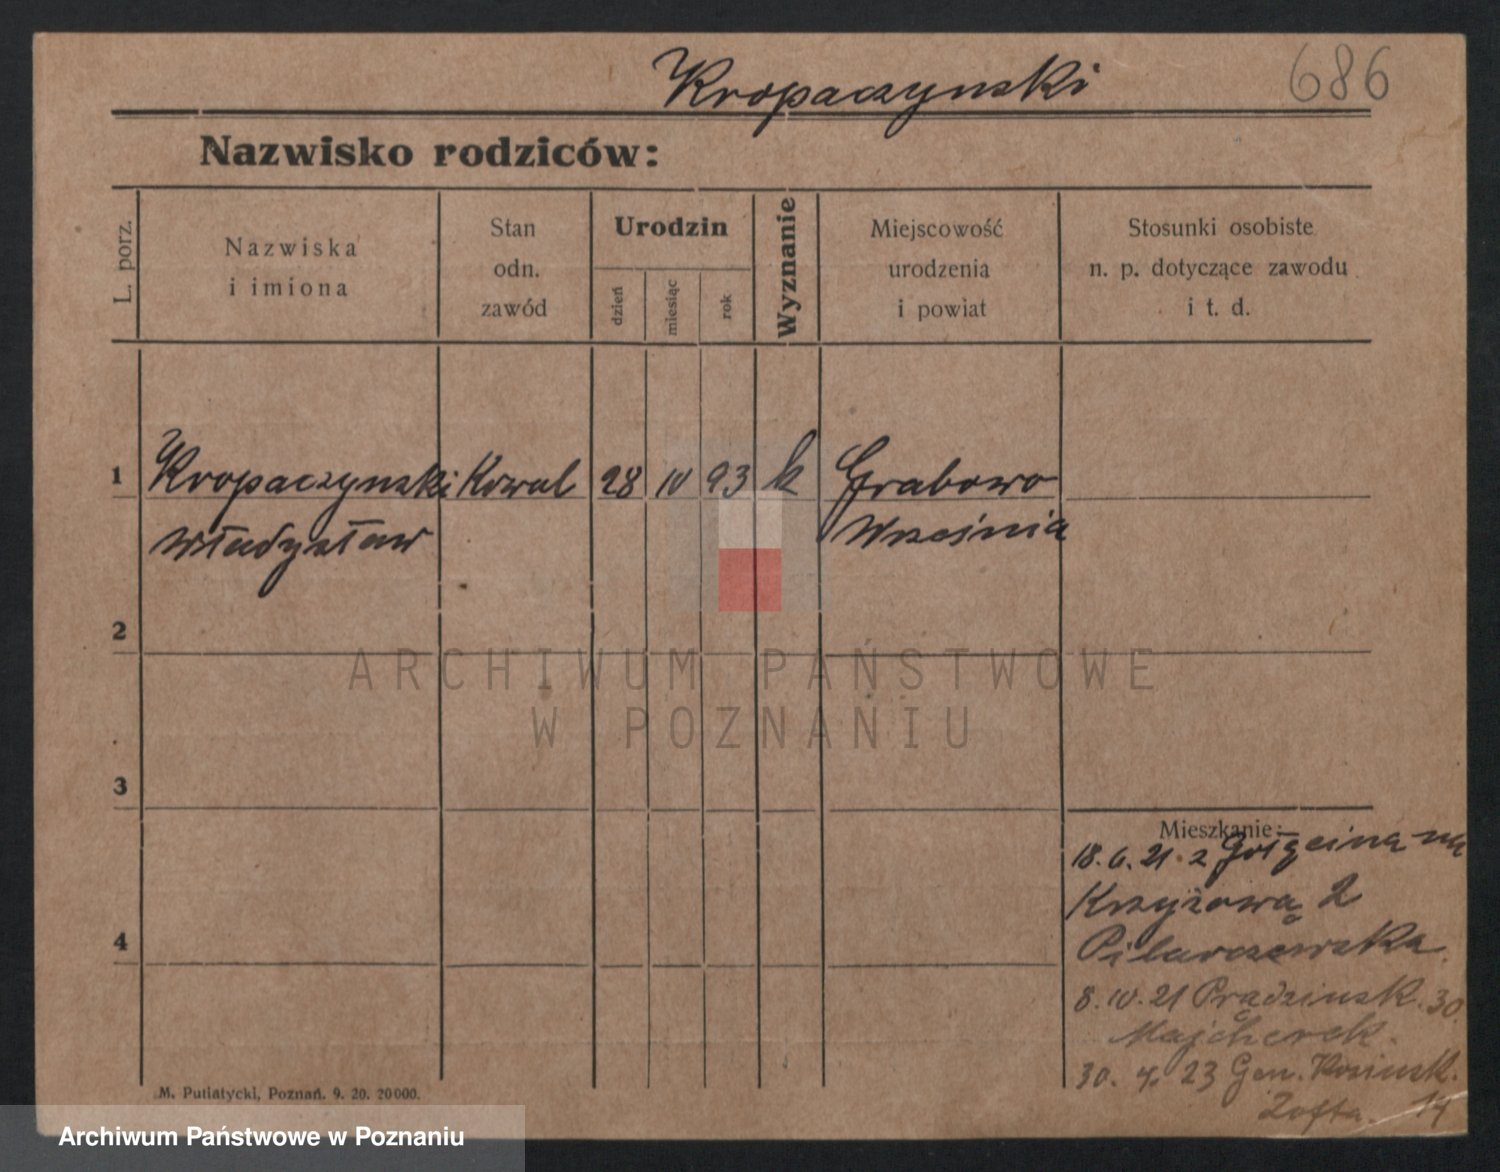 Kropaczynski
686
Nazwisko rodziców:
L. porz.
Nazwiska
i imiona
Stan
odn.
zawód
Urodzin
dzień
miesiąc
rok
Wyznanie
Miejscowość
urodzenia
i powiat
Stosunki osobiste
n. p. dotyczące zawodu
i t. d.
1
Kropaczynski Kowal 28 10 93 k Grabowo
Władysław Września
2
ARCHIWUM PAŃSTWOWE
W POZNANIU
3
Mieszkanie:
18.6.21. z Gołęcina na
Krzyżową 2
4
Pilarczewska.
8.10.21 Prądzinsk. 30
Majcherek.
30. 4. 23 Gen. Kosinsk.
14
M. Putiatycki, Poznań. 9. 20. 20000.
Archiwum Państwowe w Poznaniu